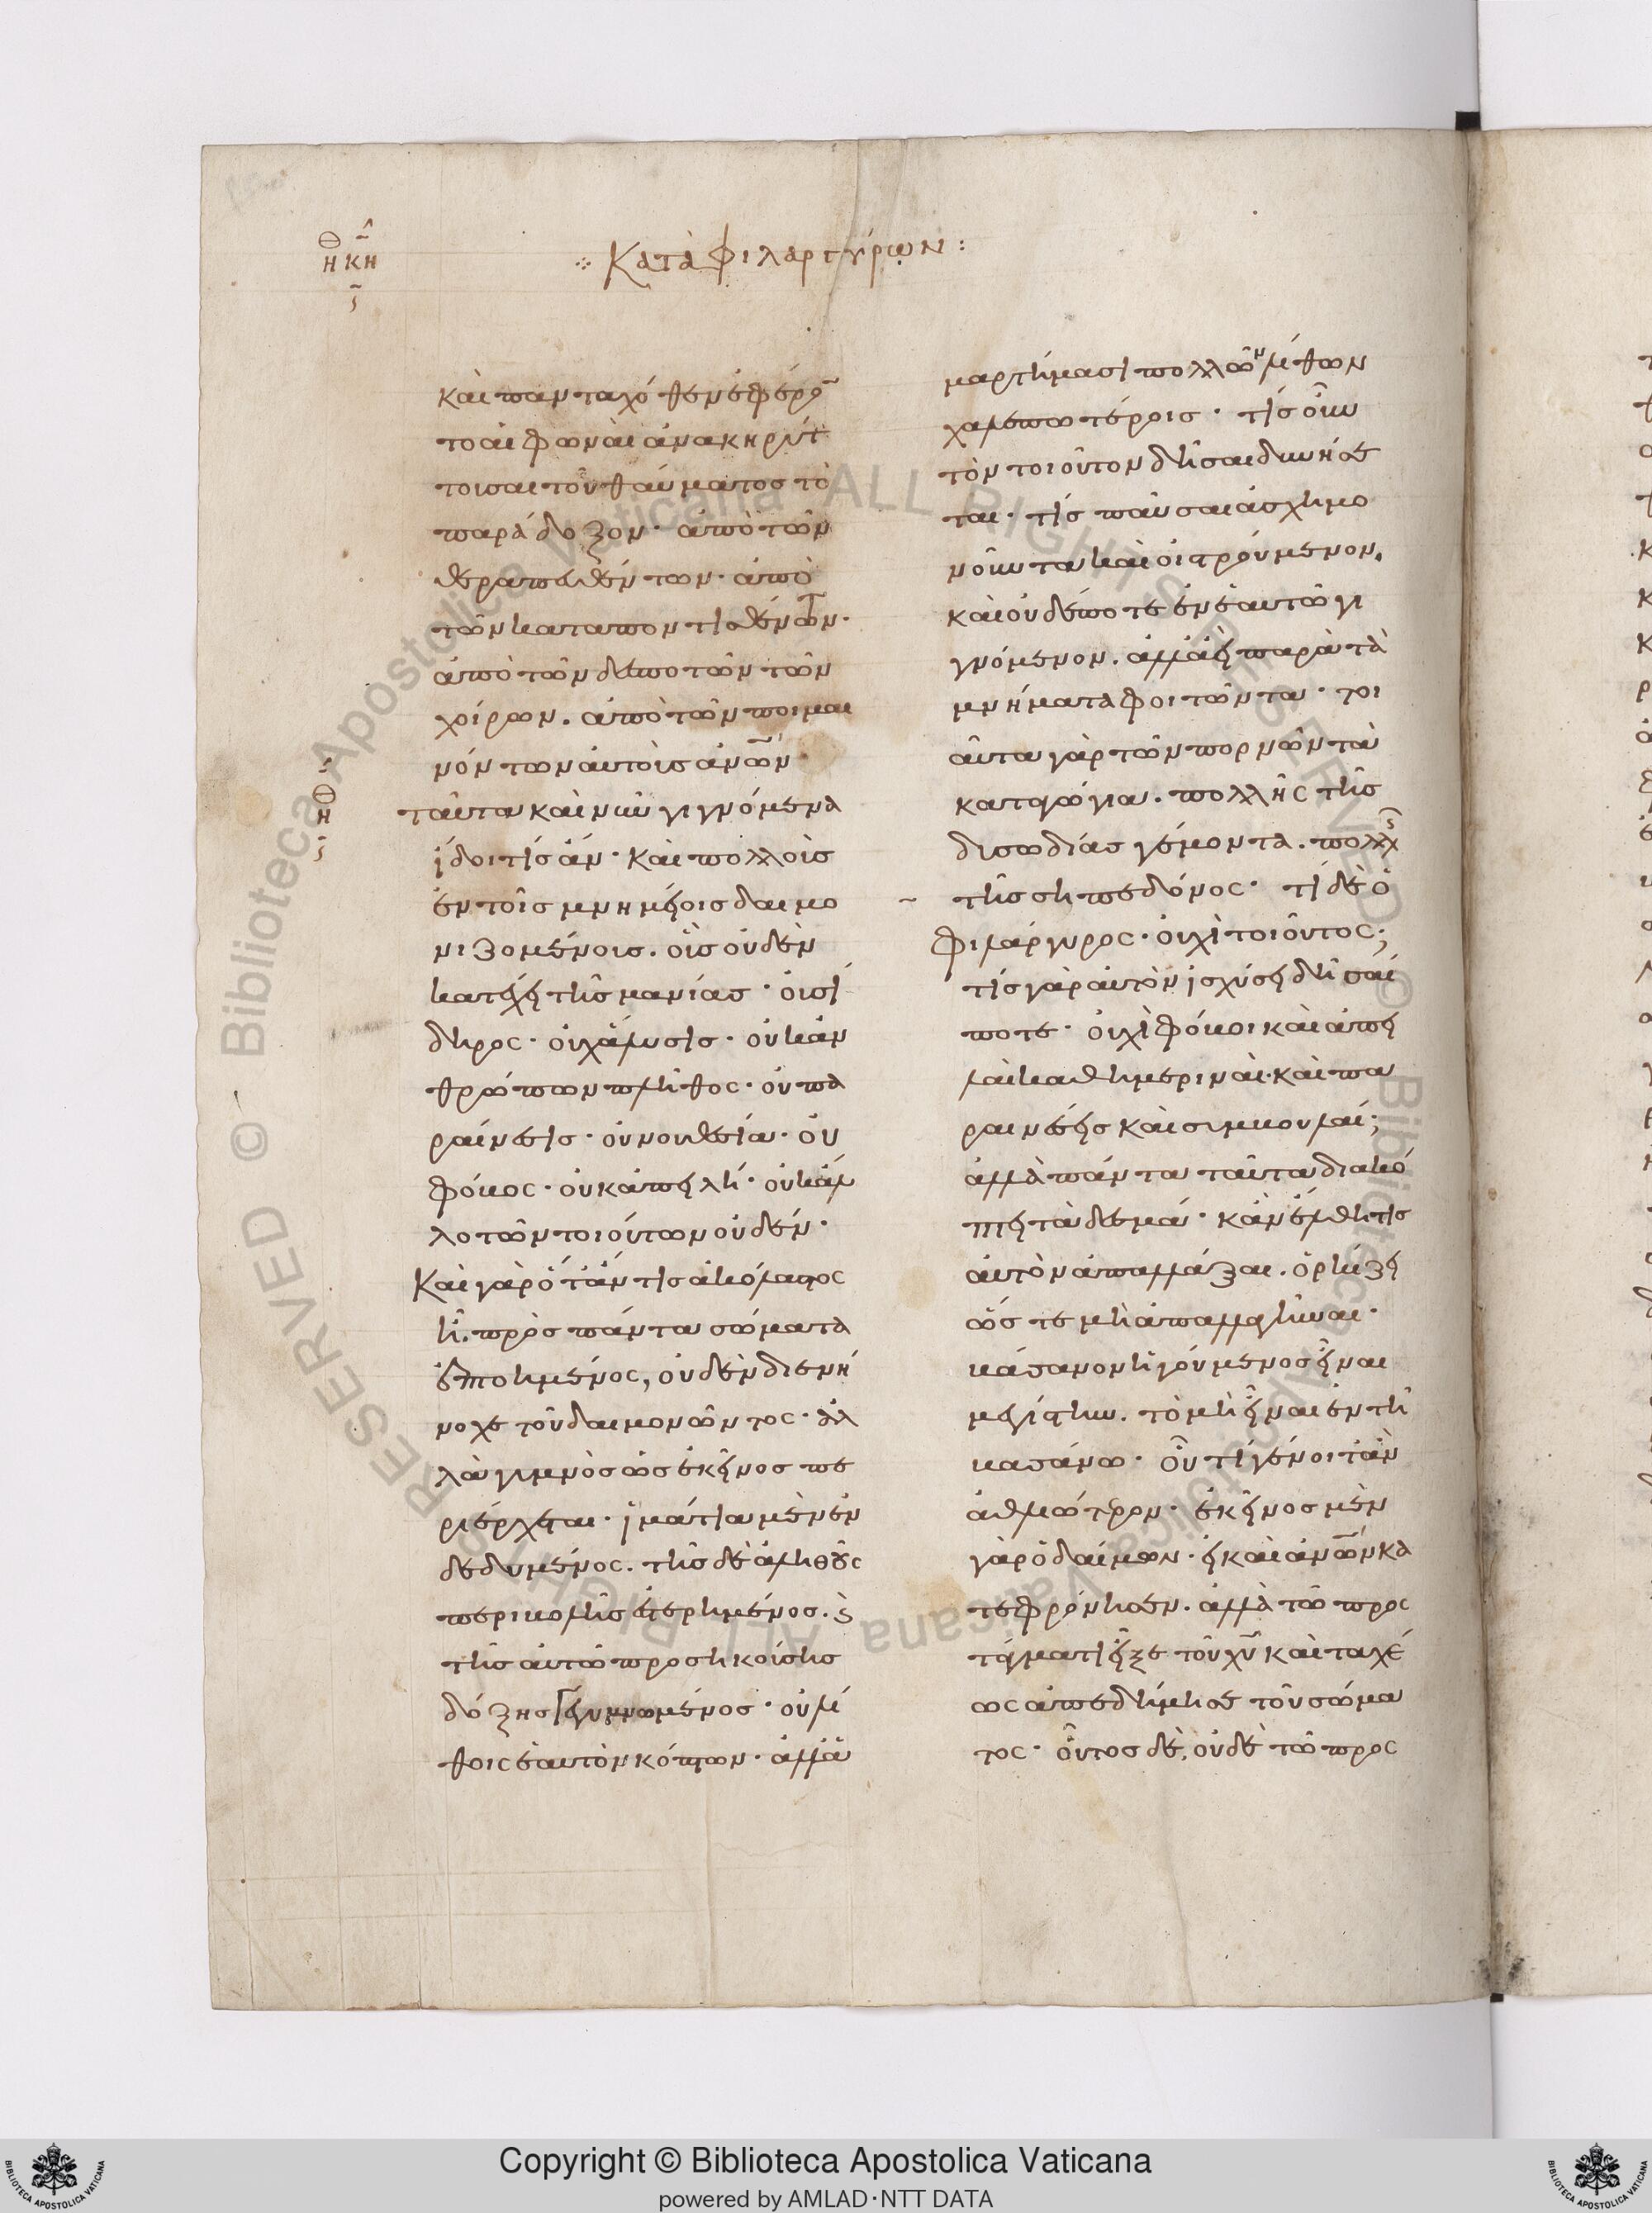 Κατὰ φιλαργύρων:
καὶ πανταχόθεν ἐφέρο
το αἱ φωναὶ ἀνακηρύτ
τουσαι τοῦ θαύματος τὸ
παράδοξον· ἀπὸ τῶν
θεραπευθέντων· ἀπὸ
τῶν καταποντισθέντων·
ἀπὸ τῶν δεσποτῶν τῶν
χοίρων. ἀπὸ τῶν ποιμαι
νόντων αὐτοὺς ἀνων·
ταῦτα καὶ νῦν γιγνόμενα
ἴδοι τίς ἄν· καὶ πολλοὺς
ἐν τοῖς μνημείοις δαιμο
νιζομένους. οὓς οὐδὲν
κατέχει τῆς μανίας· οὐ σί
δηρος· οὐχ ἅλυσις· οὐκ ἀν
θρώπων πλῆθος· οὐ πα
ραίνεσις· οὐ νουθεσία· οὐ
φόβος· οὐκ ἀπειλή· οὐκ ἄλ
λο τῶν τοιούτων οὐδέν·
Καὶ γὰρ ὅταν τις ἀκόλαστος
ἦ. πρὸς πάντα σώματα
ἐπτοημένος, οὐδὲν διενή
νοχε τοῦ δαιμονῶντος· ἀλ
λὰ γυμνὸς ὡς ἐκεῖνος πε
ριέρχεται· ἱμάτια μὲν ἐν
δεδυμένος. τῆς δὲ ἀληθοῦς
περιβολῆς ἐστερημένος. καὶ
τῆς αὐτῶ προσηκούσης
δόξης γεγυμνωμένος· οὐ λί
θοις ἑαυτὸν κόπτων· ἀλλ' ἁ
μαρτήμασι πολλῶν λίθων
χαλεπωτέροις· τίς οὖν
τὸν τοιοῦτον δῆσαι δυνήσε
ται· τίς παῦσαι ἀσχημο
νοῦντα καὶ οἰστρούμενον.
καὶ οὐδέποτε ἐν ἑαυτῶ γι
γνόμενον. ἀλλ' ἀεὶ παρὰ τὰ
μνήματα φοιτῶντα· τοι
αῦτα γὰρ τῶν πορνῶν τὰ
καταγώγια. πολλῆς τῆς
δυσωδίας γέμοντα. πολλῆς
τῆς σηπεδόνος· τί δὲ ὁ
φιλάργυρος· οὐχὶ τοιοῦτος;
τίς γὰρ αὐτὸν ἰσχύσει δῆσαί
ποτε· οὐχὶ φόβοι καὶ ἀπει
λαὶ καθημεριναὶ· καὶ πα
ραινέσεις καὶ συμβουλαί;
ἀλλὰ πάντα ταῦτα διακό
πτει τὰ δεσμά· κἂν ἔλθη τις
αὐτὸν ἀπαλλάξαι. ὁρκίζει
ὥστε μὴ ἀπαλλαγῆναι·
βάσανον ἡγούμενος εἶναι
μεγίστην. τὸ μὴ εἶναι ἐν τῆ
βασάνω· οὗ τί γένοιτ' ἂν
ἀθλιώτερον· ἐκεῖνος μὲν
γὰρ ὁ δαίμων· εἰ καὶ ἀνων κα
τεφρόνησεν. ἀλλὰ τῶ προς
τάγματι εἶξε τοῦ χυ καὶ ταχέ
ως ἀπεδήμησε τοῦ σώμα
τος· οὗτος δὲ, οὐδὲ τῶ προς
Copyright © Biblioteca Apostolica Vaticana
powered by AMLAD·NTT DATA